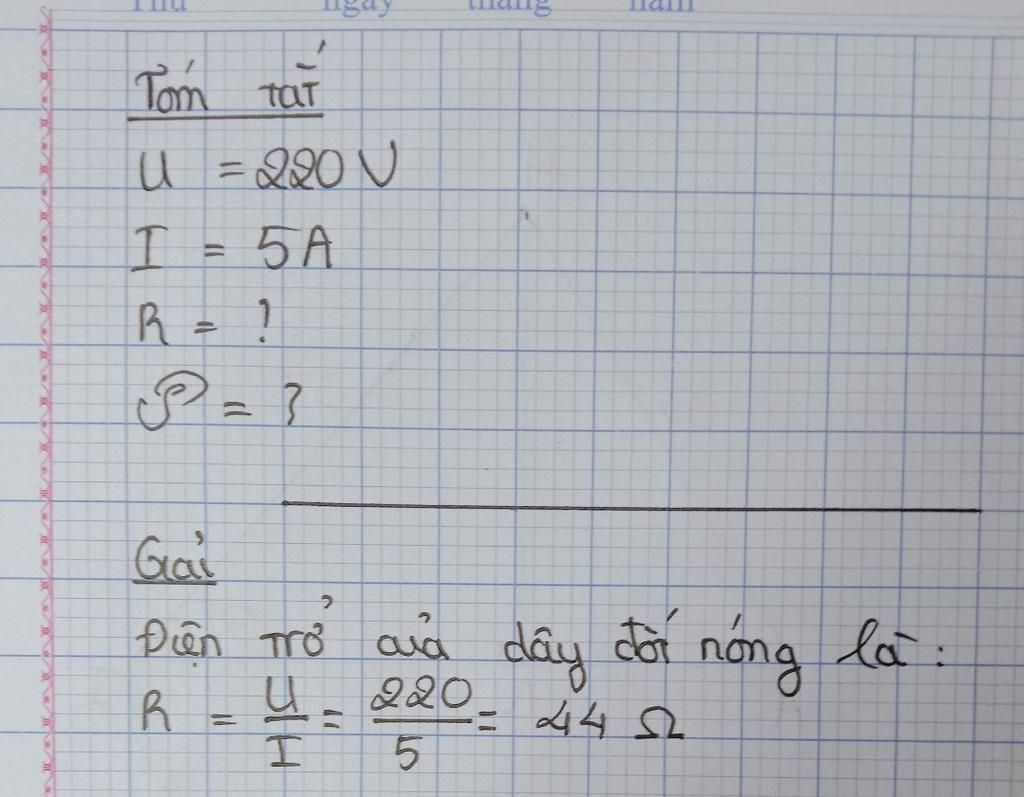 Thứ ngày tháng năm
Tóm tắt
U = 220 V
I = 5A
R = ?
P = ?
Giải
Điện trở của dây đốt nóng là :
R = U/I = 220/5 = 44 Ω